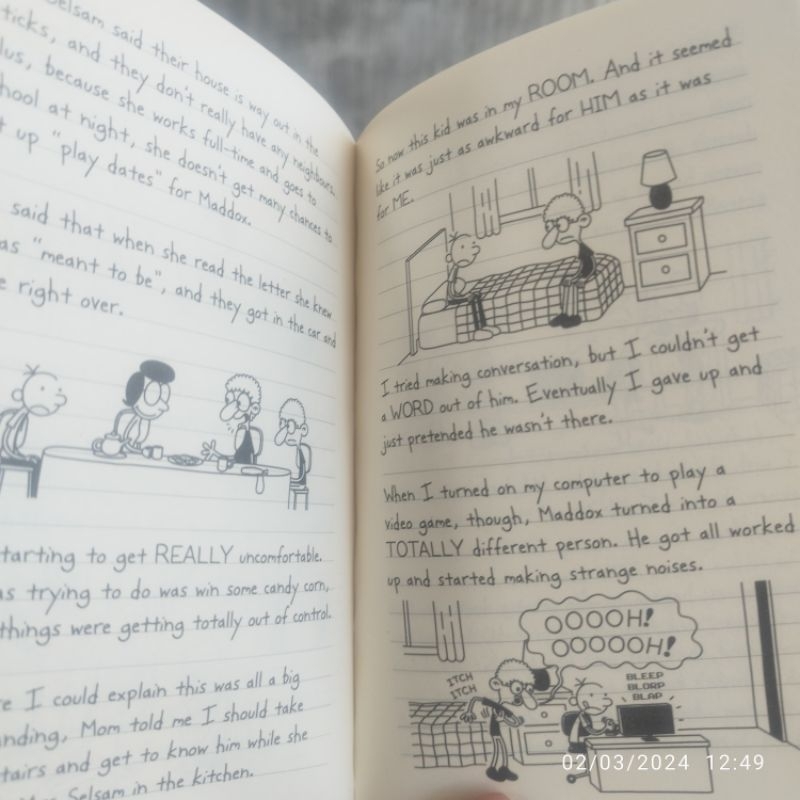 Selsam said their house is way out in the
ticks, and they don't really have any neighbours.
lus, because she works full-time and goes to
hool at night, she doesn't get many chances to
t up "play dates" for Maddox.
said that when she read the letter she knew
as "meant to be", and they got in the car and
e right over.
tarting to get REALLY uncomfortable.
as trying to do was win some candy corn,
things were getting totally out of control.
re I could explain this was all a big
anding, Mom told me I should take
tairs and get to know him while she
Mrs Selsam in the kitchen.
So now this kid was in my ROOM. And it seemed
like it was just as awkward for HIM as it was
for ME.
I tried making conversation, but I couldn't get
a WORD out of him. Eventually I gave up and
just pretended he wasn't there.
When I turned on my computer to play a
video game, though, Maddox turned into a
TOTALLY different person. He got all worked
up and started making strange noises.
OOOOH!
OOOOOH!
ITCH
ITCH
BLEEP
BLORP
BLAP
02/03/2024 12:49